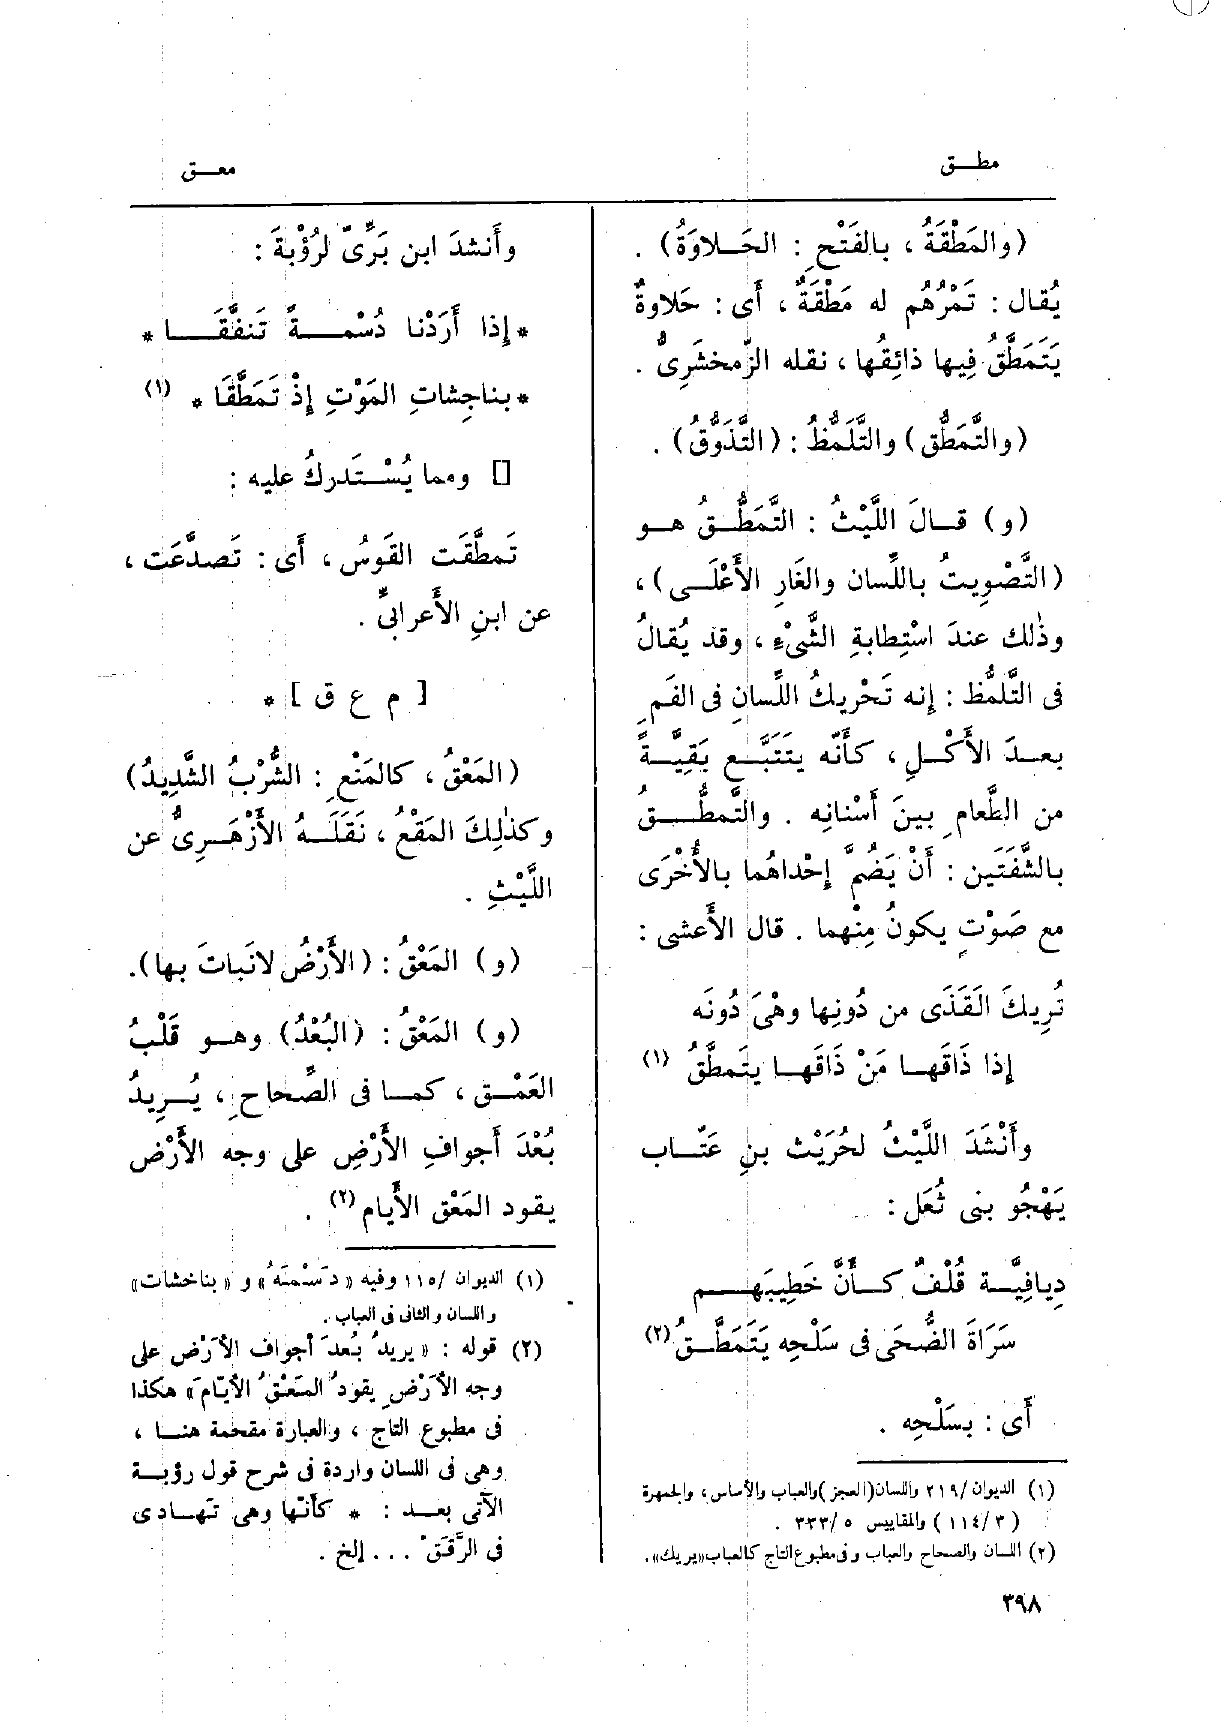 مطـق
معـق
(والمَطْقَةُ ، بالفَتْحِ : الحَـلاوَةُ) .
يُقال : تَمْرُهُم له مَطْقَةٌ ، أَى : حَلاوةٌ
يَتَمَطَّقُ فِيها ذائِقُها ، نقله الزَّمخشَرِىُّ .
(والتَّمَطُّق) والتَّلَمُّظُ : (التَّذَوُّقُ) .
(و) قـالَ اللَّيْثُ : التَّمَطُّـقُ هـو
(التَّصْوِيتُ باللِّسان والغَارِ الأَعْلَـى) ،
وذٰلك عندَ اسْتِطابةِ الشَّىْءِ ، وقد يُقالُ
فى التَّلمُّظ : إنه تَحْرِيكُ اللِّسانِ فى الفَمِ
بعـدَ الأَكْـلِ ، كأَنَّه يتَتَبَّـع بَقِيَّـةً
من الطَّعامِ بينَ أَسْنانِه . والتَّمطُّـقُ
بالشَّفَتَين : أَنْ يَضُمَّ إِحْداهُما بالأُخْرَى
مع صَوْتٍ يكونُ مِنْهما . قال الأَعشى :
تُرِيكَ القَذَى من دُونِها وهْىَ دُونَه
إذا ذَاقَهـا مَنْ ذَاقَهـا يتَمطَّقُ (١)
وأَنْشَدَ اللَّيْثُ لحُرَيْث بنِ عَتَّـاب
يَهْجُو بنى ثُعَل :
دِيافِيَّـة قُلْفٌ كـأَنَّ خَطِيبَهـم
سَرَاةَ الضُّحَى فى سَلْحِه يَتَمَطَّـقُ (٢)
أَى : بسَلْحِه .
(١) الديوان /٢١٩ واللسان (العجز) والعباب والأساس ، والجمهرة
(٣ /١١٤) والمقاييس ٥ /٣٣٣ .
(٢) اللسان والصحاح والعباب وفى مطبوع التاج كالعباب «يريك» .
وأَنشدَ ابن بَرِّىّ لرُؤْبةَ :
* إذا أَرَدْنا دُسْمـةً تَنفَّقَـا *
* بناجِشاتِ المَوْتِ إذْ تَمَطَّقَا * (١)
[] ومما يُسْـتَدركُ عليه :
تَمطَّقَت القَوسُ ، أَى : تَصدَّعَت ،
عن ابنِ الأَعرابىِّ .
[ م ع ق ] *
(المَعْقُ ، كالمَنْعِ : الشُّرْبُ الشَّدِيدُ)
وكذٰلِكَ المَقْعُ ، نَقَلَـهُ الأَزْهَـرِىُّ عن
اللَّيْثِ .
(و) المَعْقُ : (الأَرْضُ لانَباتَ بها) .
(و) المَعْقُ : (البُعْدُ) وهـو قَلْبُ
العَمْـق ، كمـا فى الصِّحاحِ ، يُـرِيدُ
بُعْدَ أَجوافِ الأَرْضِ على وجه الأَرْض
يقود المَعْق الأَيام (٢) .
(١) الديوان /١١٥ وفيه «دَسْمتَهُ» و «بناخشات»
واللسان والثانى فى العباب .
(٢) قوله : «يريدُ بُعدَ أجواف الأرْض على
وجه الأرْضِ يقودُ المَعْقُ الأيّامَ» هكذا
فى مطبوع التاج ، والعبارة مقحمة هنـا ،
وهى فى اللسان واردة فى شرح قول رؤبـة
الآتى بعـد : * كأنّها وهى تَهـادى
فى الرَّقَقْ ... إلخ .
٣٩٨